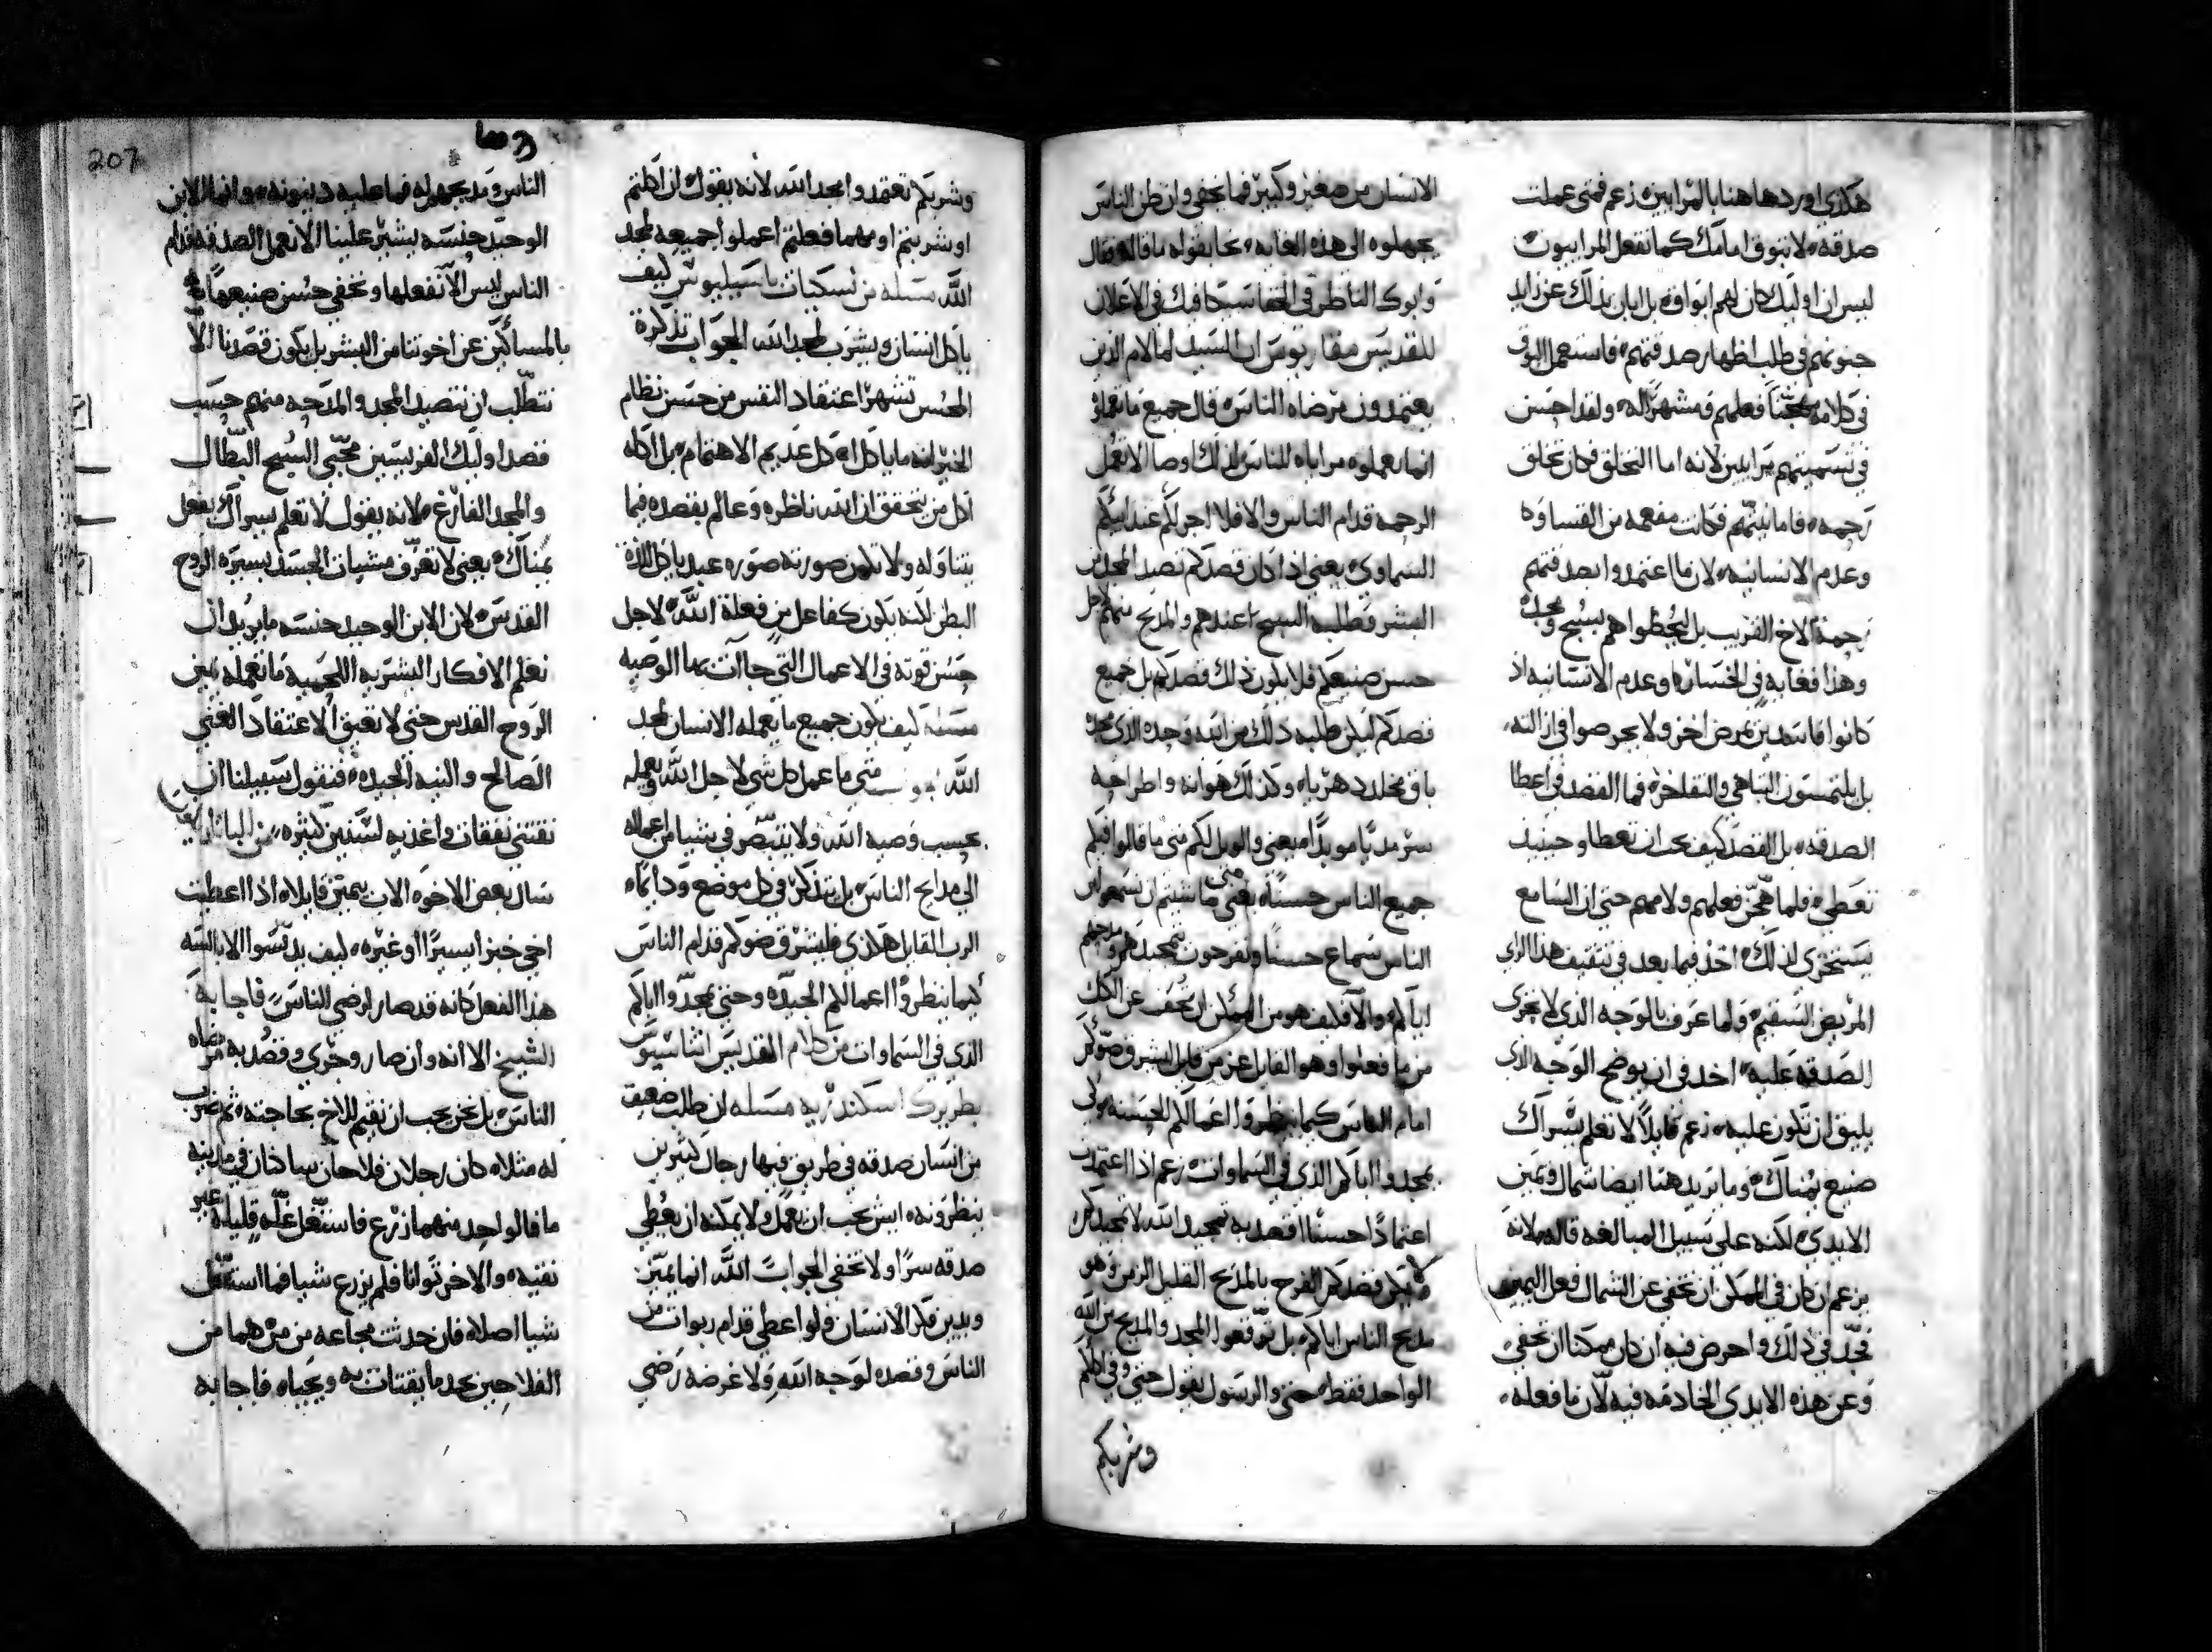 هكذى اوردها هنا بالمرايين زعم فمتى عملت
صدقه لا تبوق امامك كما تفعل المراييون
ليس ان اوليك كان لهم ابواق بل ابان بذلك عن زايد
جنونهم في طلب اظهار صدقتهم فاستعمل البوق
في كلامه فعلهم ومشهرًا له ولقد احسن
في تسميتهم مرايين لانه اما التخلق فكان تخلق
رحمه فاما نيتهم فكانت مفعمه من القساوه
وعدم الانسانيه لان ما اعتمدوا بصدقتهم
رحمة الاخ القريب بل ليحظوا هم بسبح ومجد
وهذا فغايه في الخساره وعدم الانسانيه اذ
كانوا فاسدين بمرض اخر ولا يحرصوا في ازالته
بل يلتمسون التباهي والتفاخر فما القصد في اعطا
الصدقه بل القصد كيف يجب ان تعطا وحينيذ
تعطي فلما هجّن فعلهم ولامهم حتى ان السامع
يستخزى لذلك اخذ فيما بعد في تثقيف هذا الراي
المريض السقيم ولما عرف بالوجه الذي لا تجرى
الصدقه عليه اخد في ان يوضح الوجه الذي
يليق ان تكون عليه زعم قايلاً لا تعلم يسراك
صنيع يمناك وما يريد هنا ايضا شمال ويمين
الايدى لكنه على سبيل المبالغه قاله لانه
يزعم ان كان في الممكن ان تخفي عن الشمال فعل اليمين
فجّد في ذلك واحرص فيه ان كان ممكنا ان تخفى
وعن هذه الايدي الخادمه فيه لان ما فعله
الانسان من صغير وكبير فما يخفى وان ظن الناس
يجهلوه الى هذه الغايه نحا بقوله ما قاله فقال
وابوك الناظر في الخفا سيكافيك في الاعلان
للقديس مقاريوس ان السيد لما لام الذين
يعتمدون مرضاة الناس قال جميع ما يعملوه
انما يعملوه مراياه للناس لذلك اوصا الا تعمل
الرحمه قدام الناس والا فلا اجر لكم عند ابيكم
السماوي يعني اذا كان قصدكم تصيد المجد من
البشر وطلبه السبح عندهم والمديح منهم لاجل
حسن صنيعكم فلا يكون ذلك قصدكم بل جميع
قصدكم ليكن طلبه ذلك من الله وحده الذي مجده
باق مخلد دهريا وكذلك هوانه واطراحه
سرمديًا موبدًا معني والويل لكم متى ما قالوا فيكم
جميع الناس حسنًا يعني متى ما شيتم ان تسمعوا من
الناس سماع حسنًا وتفرحون بتمجيدهم ومدحهم
اياكم والا فكيف هو من الممكن ان تخفف عن الكل
من ما فعلوا وهو القايل عز من قايل ليشرق ضوكم
امام الناس كيما ينظروا اعمالكم الحسنه ولكي
يمجدوا اباكم الذي في السماوات زعم اذا اعتمدت
اعتمادًا حسنًا اقصد به تمجيد الله لا تمجيدكم
لا يكن قصدكم الفرح بالمديح القليل الزمن وهو
مديح الناس اياكم بل توقعوا المجد والمديح من الله
الواحد فقط حتى والرسول يقول حتى وفي اكلكم
وشربكم
207
وشربكم تعتمدوا مجد الله لانه يقول ان اكلتم
او شربتم او مهما فعلتم اعملوا جميعه لمجد
الله مسله من نسكيات باسيليوس كيف
ياكل انسان ويشرب لمجد الله الجواب تذكرة
المحسن تشهر اعتقاد النفس من حسن نظام
الخير انه ما ياكل اكل عديم الاهتمام بل اكله
اكل من يتحقق ان الله ناظره وعالم بقصده فيما
يتناوله ولا تكون صورته صوره عبد ياكل للذة
البطن لكنه يكون كفاعل من فعلة الله لاجل
حسن قوته في الاعمال التي جاآت بها الوصيه
مسله كيف يكون جميع ما يعمله الانسان لمجد
الله متى ما عمل كل شي لاجل الله وبعمله
بحسب وصية الله ولا يتبصّر في شيا من اعماله
الى مدايح الناس بل يتذكر في كل موضع ودايمًا
الرب القايل هكذي فليشرق ضوكم قدام الناس
كيما ينظروا اعمالكم الجيده وحتى يمجدوا اباكم
الذي في السماوات من كلام القديس اتناسيوس
بطريرك اسكندريه مسله ان طلب ضعيف
من انسان صدقه في طريق فيها رجال كثيرين
ينظرونه ايش يجب ان يعمل ولا يمكنه ان يعطي
صدقه سرًا ولا تخفى الجواب الله انما يميّز
ويدين فكر الانسان ولو اعطي قدام ربوات من
الناس وقصده لوجه الله ولا غرضه رضي
الناس وتمجيدهم له فما عليه دينونه وانما الابن
الوحيد جنسه يشير علينا الا نعمل الصدقه قدام
الناس ليس الا نفعلها ونخفي حسن صنيعها
بالمساكين عن اخوتنا من البشر بل يكون قصدنا الا
نتطلّب ان نتصيد المجد والمدحه منهم حسب
قصد اوليك الفريسين محبّي السبح البطّال
والمجد الفارغ لانه يقول لا تعلم يسراك بفعل
يمناك يعني لا تعرّف مشيات الجسد بسيرة الروح
القدس لان الابن الوحيد جنسه ما يريد ان
نعلم الافكار البشريه اللحميه ما تعمله يمين
الروح القدس حتى لا تعيق الاعتقاد الغني
الصالح والنيه الجيده فنقول سبيلنا ان
نقتني نفقات واغذيه لسنين كثيره
سال بعض الاخوه الاب بيمين قايلا اذا اعطيت
اخي خبزا يسيرًا او غيره كيف يدنسوا الاباليسه
هذا الفعل كانه قد صار لرضي الناس فاجابه
الشيخ الا انه وان صار وجرى وقصد به مرضاه
الناس بل نحن يجب ان نقيم للاخ بحاجته ثم ضرب
له مثلا كان رجلان فلاحان ساكنان في مدينه
ما فالواحد منهما زرع فاستغل غلّه قليله غير
نقيه والاخر توانا فلم يزرع شيا فما استغل
شيا اصلا فان حدثت مجاعه من من هما من
الفلاحين يجد ما يقتات به ويحياه فاجابه